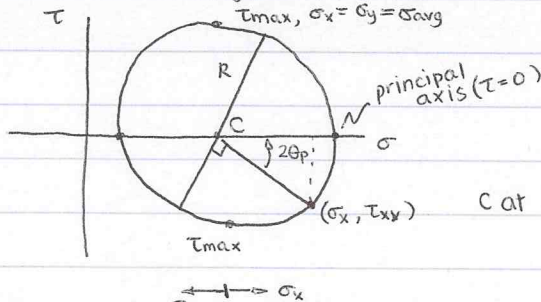 τ
τmax, σx = σy = σavg
R
principal
axis (τ=0)
C
σ
2θp
(σx, τxy)
C at
τmax
σx